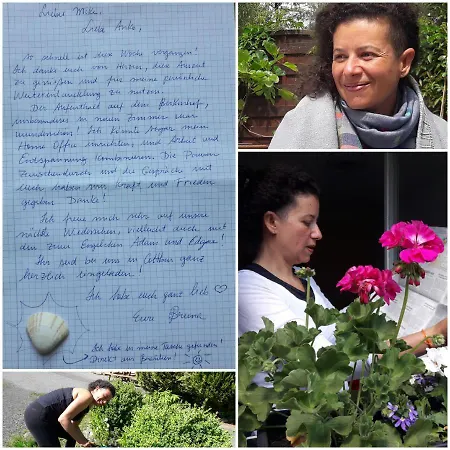 Liebe Anke,
so schnell ist die Woche vergangen!
Ich danke euch von Herzen, diese Auszeit
zu genießen und für meine persönliche
Weiterentwicklung zu nutzen.
Der Aufenthalt auf dem
insbesondere in neuen Zimmer war
wunderschön! Ich konnte sogar mein
Home Office einrichten, und Arbeit und
Entspannung kombinieren. Die Power
und die Gespräche mit
euch haben mir Kraft und Frieden
gegeben. Danke!
Ich freue mich sehr auf unser
nächstes Wiedersehen, vielleicht auch mit
den zwei Engelchen Adam und Edgar!
Ihr seid bei uns in Cottbus ganz
herzlich eingeladen!
Ich habe euch ganz lieb
Eure
Ich habe in meine Tasche gefunden!
Direkt aus Brasilien!